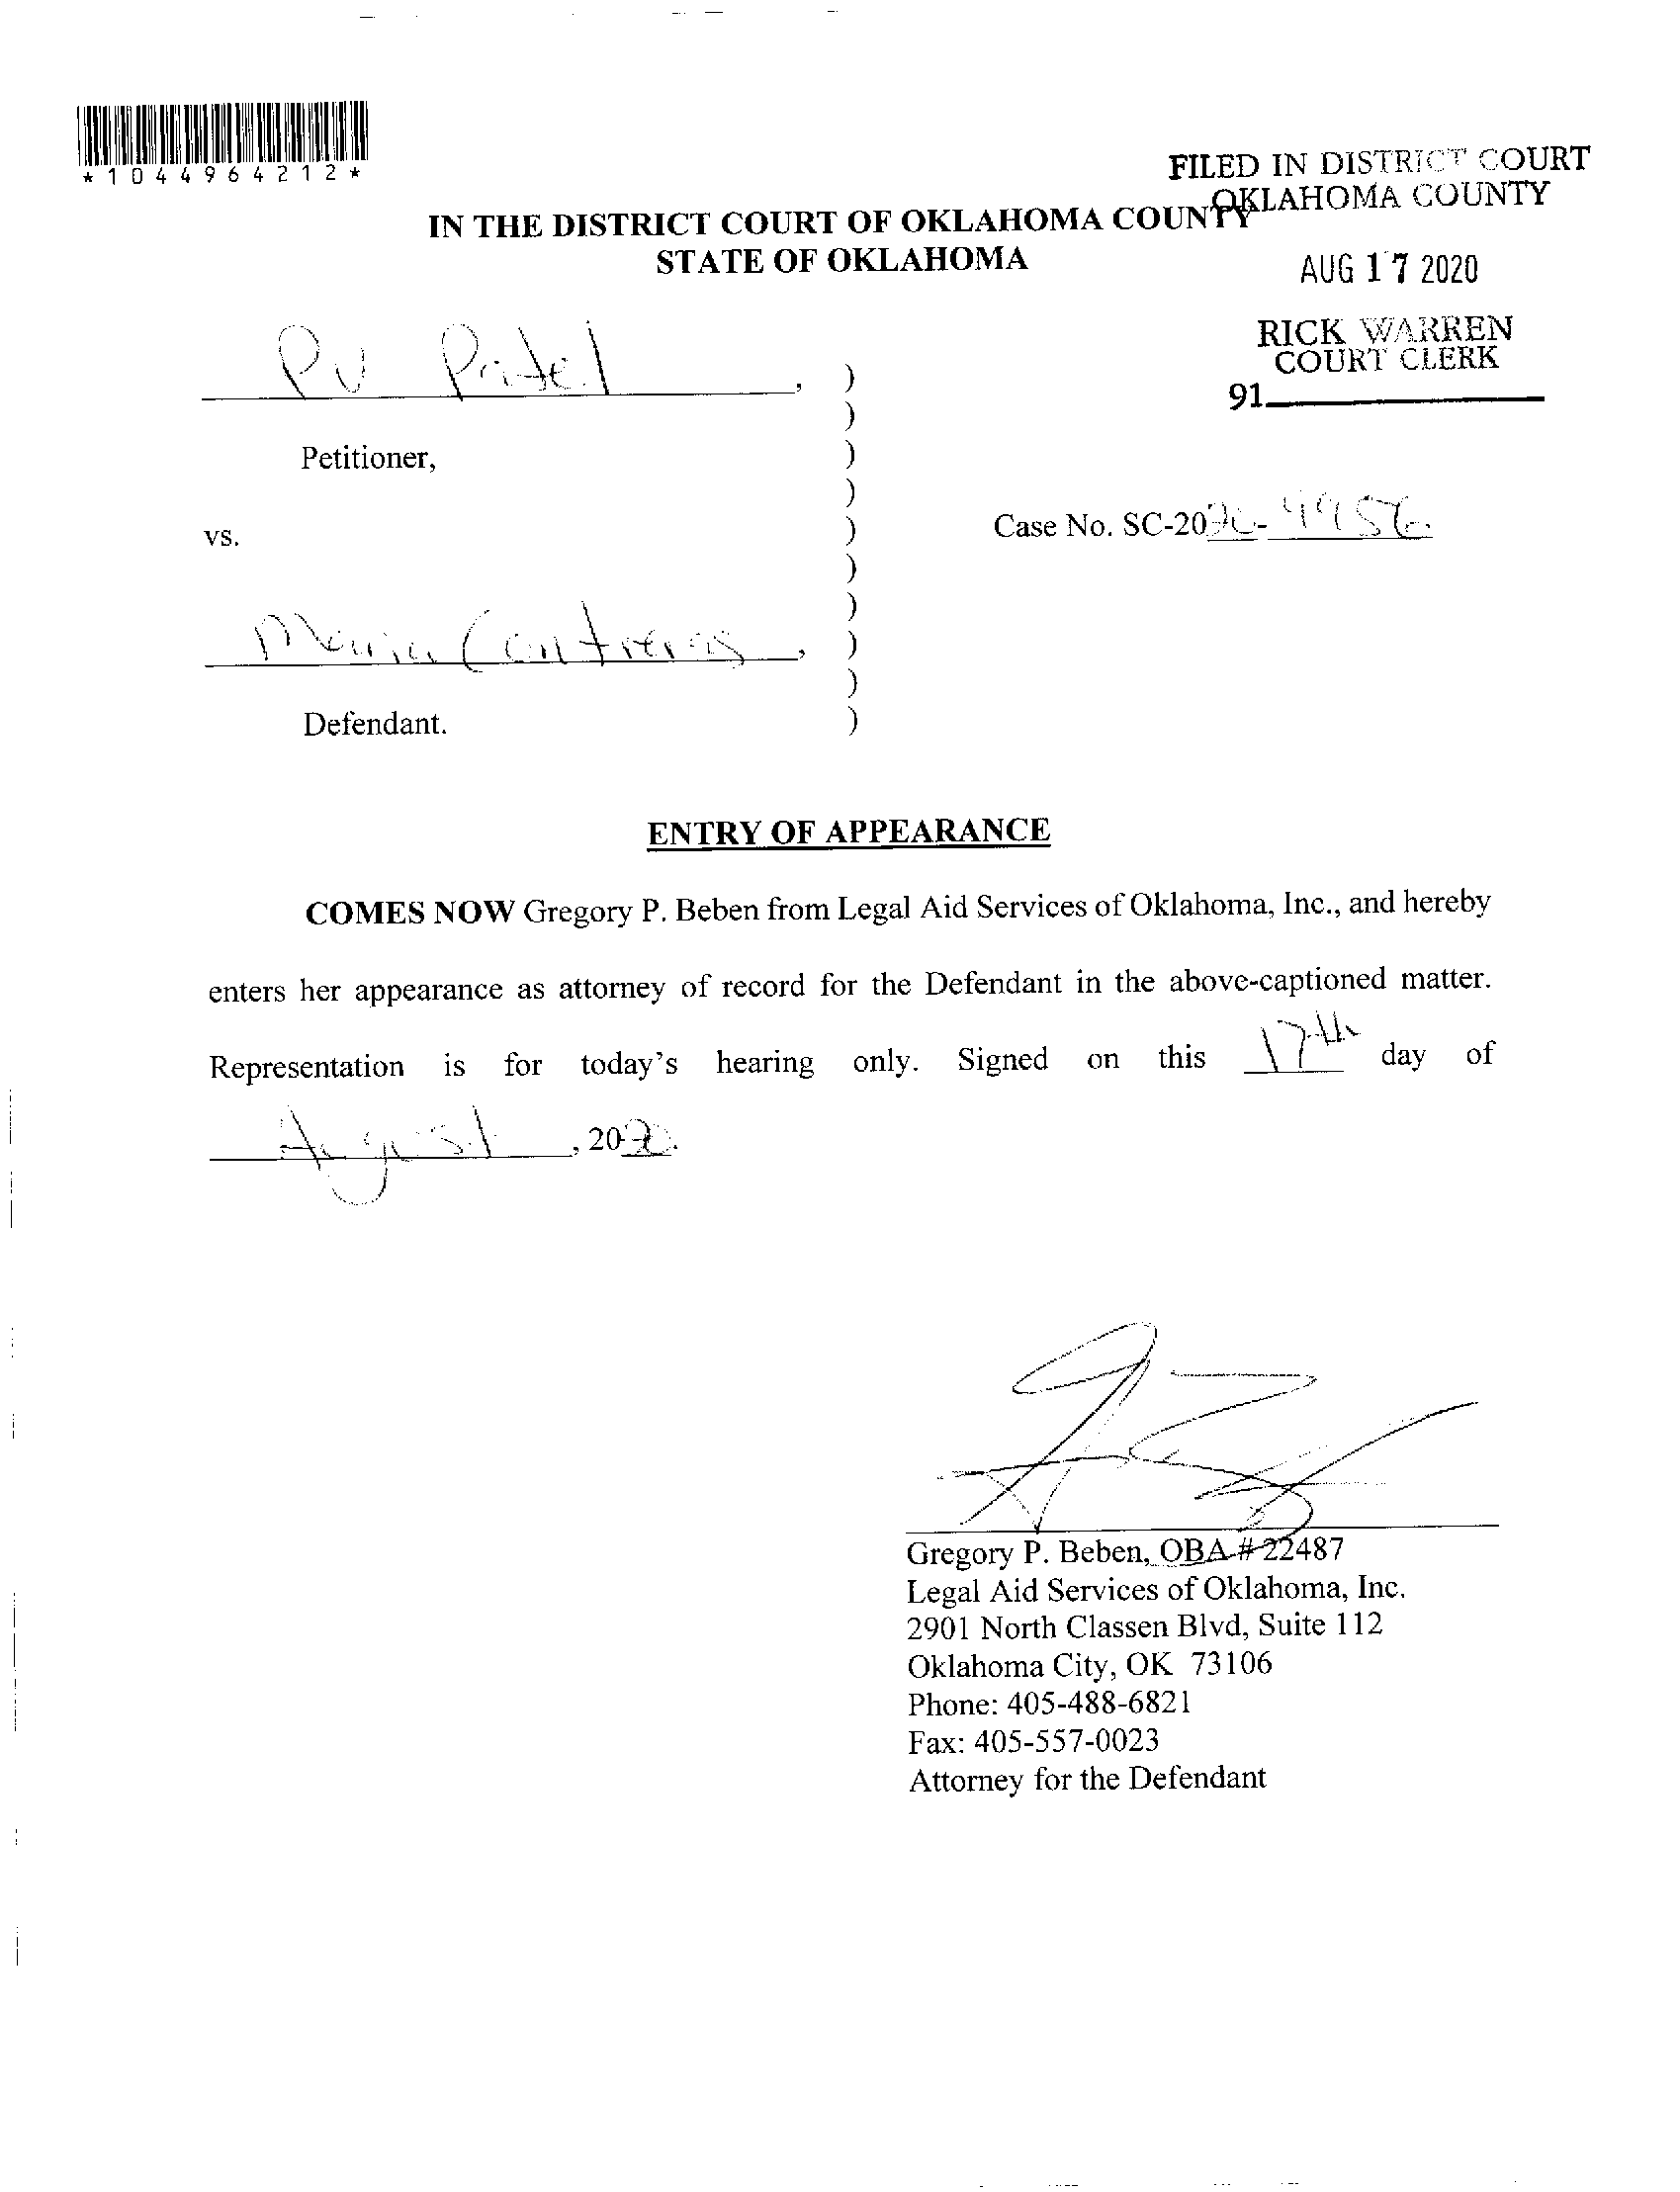 *1044964212*
FILED IN DISTRICT COURT
OKLAHOMA COUNTY
IN THE DISTRICT COURT OF OKLAHOMA COUNTY
STATE OF OKLAHOMA
AUG 17 2020
RICK WARREN
COURT CLERK
91
PV Patel,
)
)
Petitioner,
)
)
vs.
)
Case No. SC-2020-
)
)
Maria Contreras,
)
)
Defendant.
)
ENTRY OF APPEARANCE
COMES NOW Gregory P. Beben from Legal Aid Services of Oklahoma, Inc., and hereby
enters her appearance as attorney of record for the Defendant in the above-captioned matter.
Representation is for today's hearing only. Signed on this 17th day of
August, 2020.
Gregory P. Beben, OBA # 22487
Legal Aid Services of Oklahoma, Inc.
2901 North Classen Blvd, Suite 112
Oklahoma City, OK 73106
Phone: 405-488-6821
Fax: 405-557-0023
Attorney for the Defendant